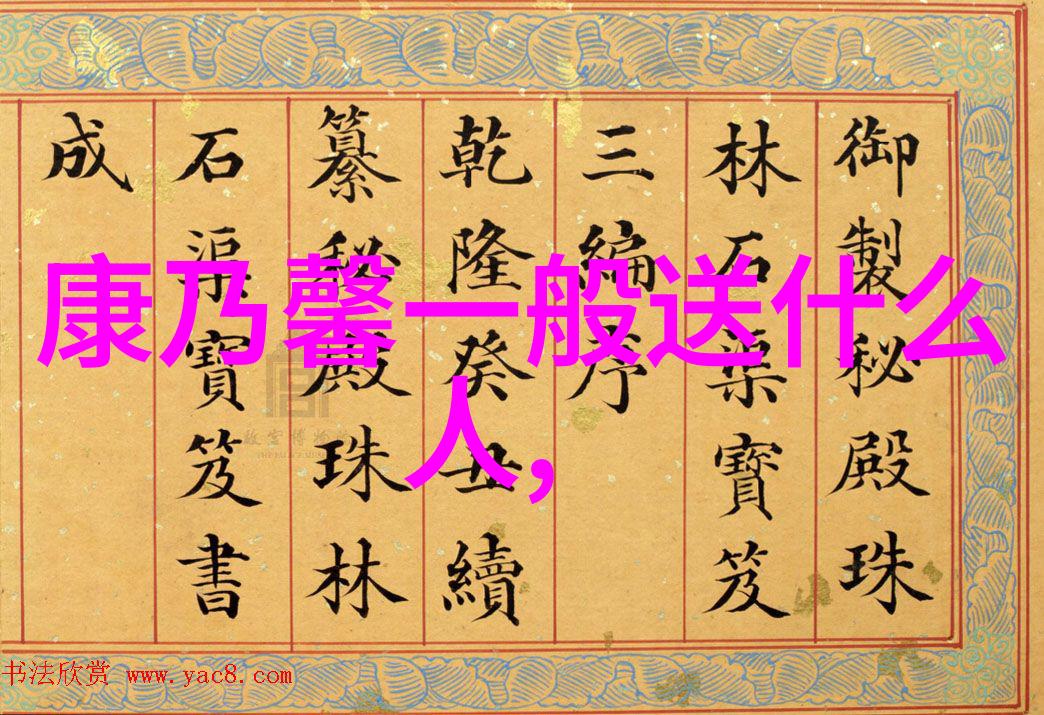 御製秘殿珠
林石渠寶笈
三編序
乾隆癸丑續
纂秘殿珠林
石渠寶笈書
成
康乃馨一般送什么
人,
书法欣赏 www.yac8.com